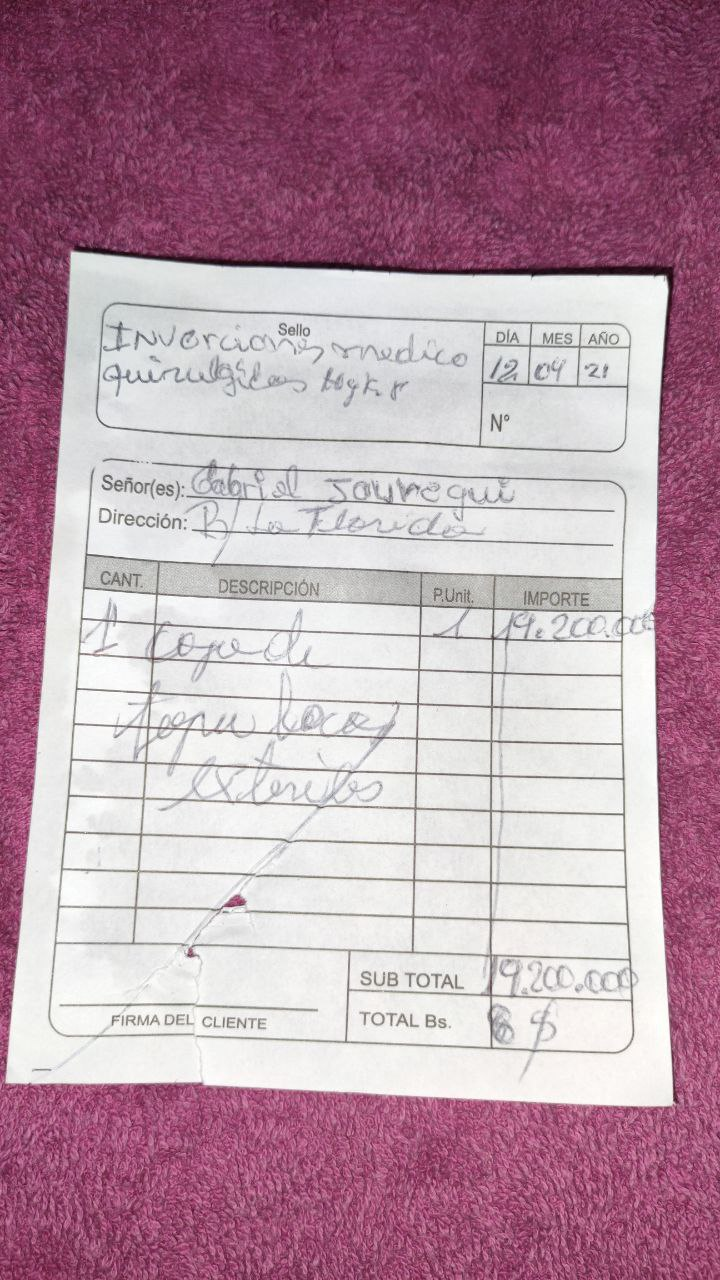 Sello
INVerciones medico
quirulgicas
DÍA MES AÑO
12 04 21
N°
Señor(es): Gabriel Jauregui
Dirección: B/ La Florida
CANT. DESCRIPCIÓN P.Unit. IMPORTE
1 caja de 1 19.200.000
tapa bocas
exteriles
SUB TOTAL 19.200.000
FIRMA DEL CLIENTE
TOTAL Bs. 8 $